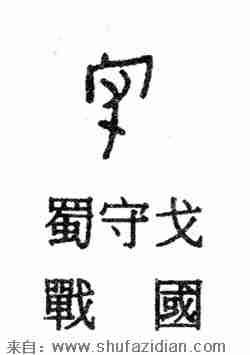 守
蜀守戈
戰國
来自：www.shufazidian.com